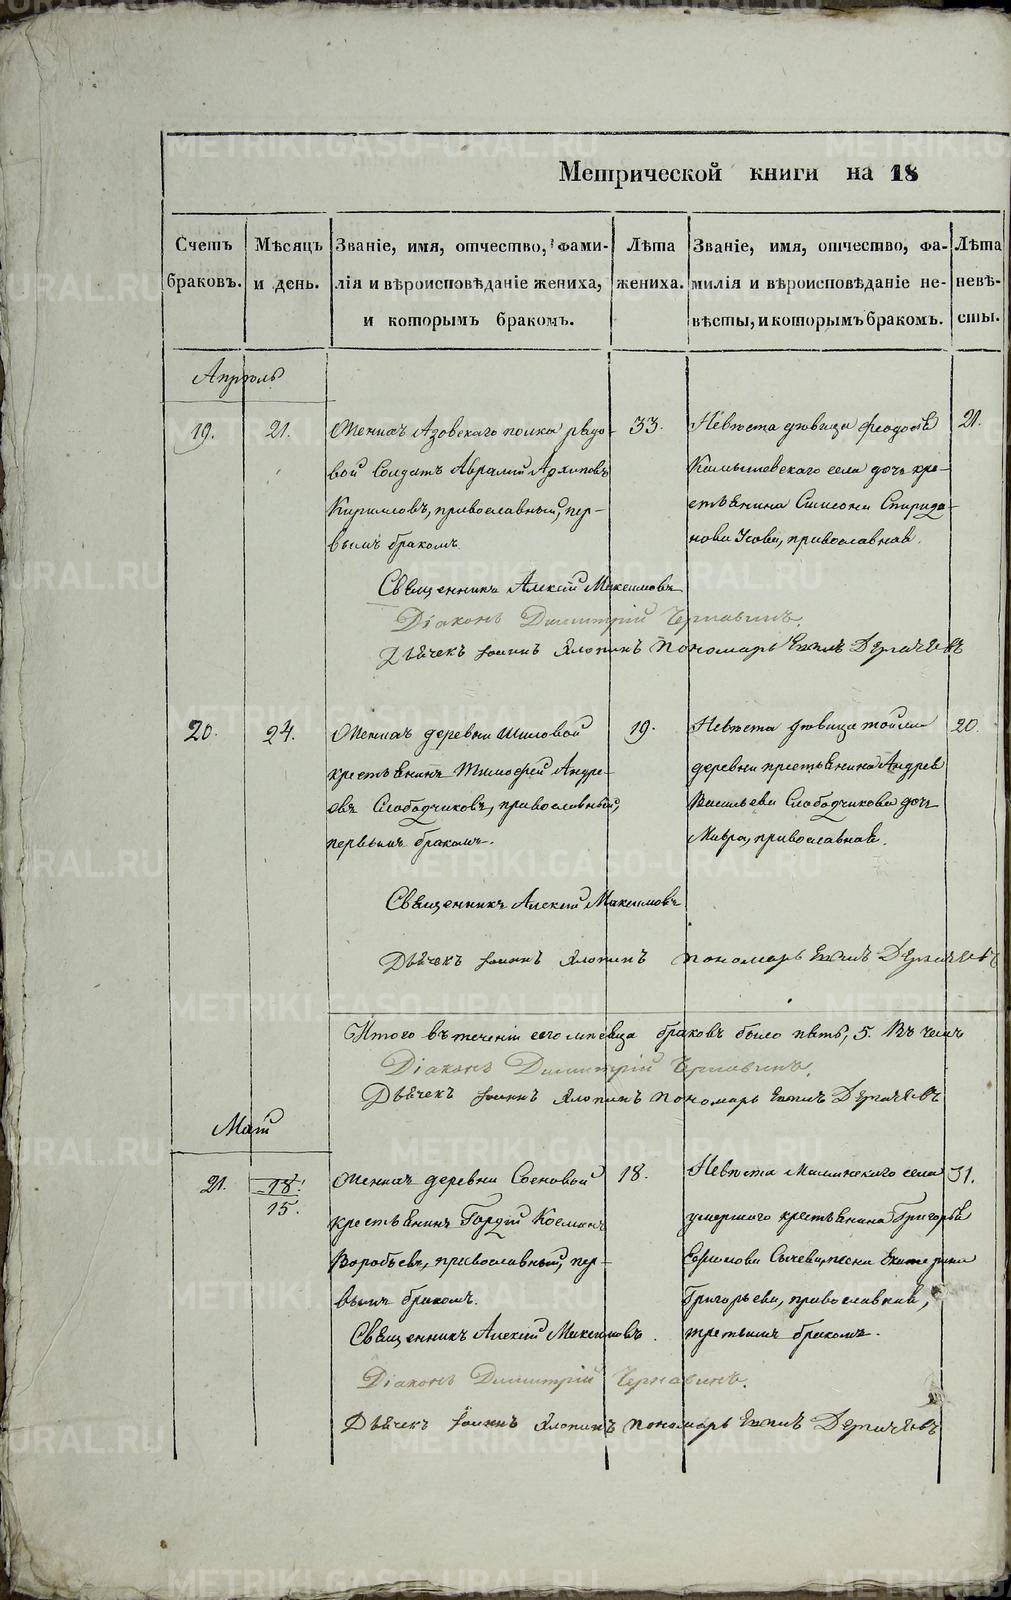 Метрической книги на 18
Счетъ браковъ.
Мѣсяцъ и день.
Званіе, имя, отчество, фами-
лія и вѣроисповѣданіе жениха,
и которымъ бракомъ.
Лѣта жениха.
Званіе, имя, отчество, фа-
милія и вѣроисповѣданіе не-
вѣсты, и которымъ бракомъ.
Лѣта невѣ-
сты.
Апрѣль
19.
21.
Женихъ Азовскаго полка рядо-
вой Солдатъ Авраамій Архиповъ
Кириловъ, православный, пер-
вымъ бракомъ.
33.
Невѣста дѣвица Феодосія
Камышевскаго села дочь кре-
стьянина Симеона Спиридо-
нова Усова, православная.
21.
Священникъ Алексій Максимовъ
Діаконъ Димитрій Чернавинъ.
Дьячекъ Іоаннъ Хлопинъ Пономарь Дерганевъ
20.
24.
Женихъ деревни Шиловой
крестьянинъ Тимофей Андре-
евъ Слободчиковъ, православный,
первымъ бракомъ.
19.
Невѣста дѣвица той же
деревни крестьянина Андрея
Васильева Слободчикова дочь
Мавра, православная.
20.
Священникъ Алексій Максимовъ
Дьячекъ Іоаннъ Хлопинъ пономарь
Итого въ теченіи сего месяца браковъ было пять, 5. Въ чемъ
Діаконъ Димитрій Чернавинъ.
Дьячекъ Іоаннъ Хлопинъ пономарь
Маій
21.
18.
15.
Женихъ деревни Сосновой
крестьянинъ Гордій Косминъ
Воробьевъ, православный, пер-
вымъ бракомъ.
18.
Невѣста села
умершаго крестьянина Григорья
Ефимова Сычева Екатерина
Григорьева, православная,
третьимъ бракомъ.
31.
Священникъ Алексій Максимовъ.
Діаконъ Димитрій Чернавинъ.
Дьячекъ Іоаннъ Хлопинъ пономарь
METRIKI.GASO-URAL.RU